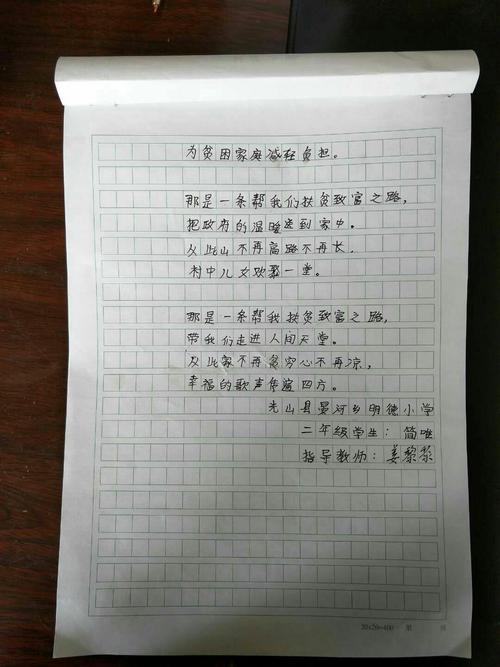 为贫困家庭减轻负担。
那是一条帮我们扶贫致富之路，
把政府的温暖送到家中。
从此山不再高路不再长，
村中儿女欢聚一堂。
那是一条帮我扶贫致富之路，
带我们走进人间天堂。
从此家不再贫穷心不再凉，
幸福的歌声传遍四方。
光山县晏河乡明德小学
二年级学生：简唯
指导教师：姜黎黎
20x20=400